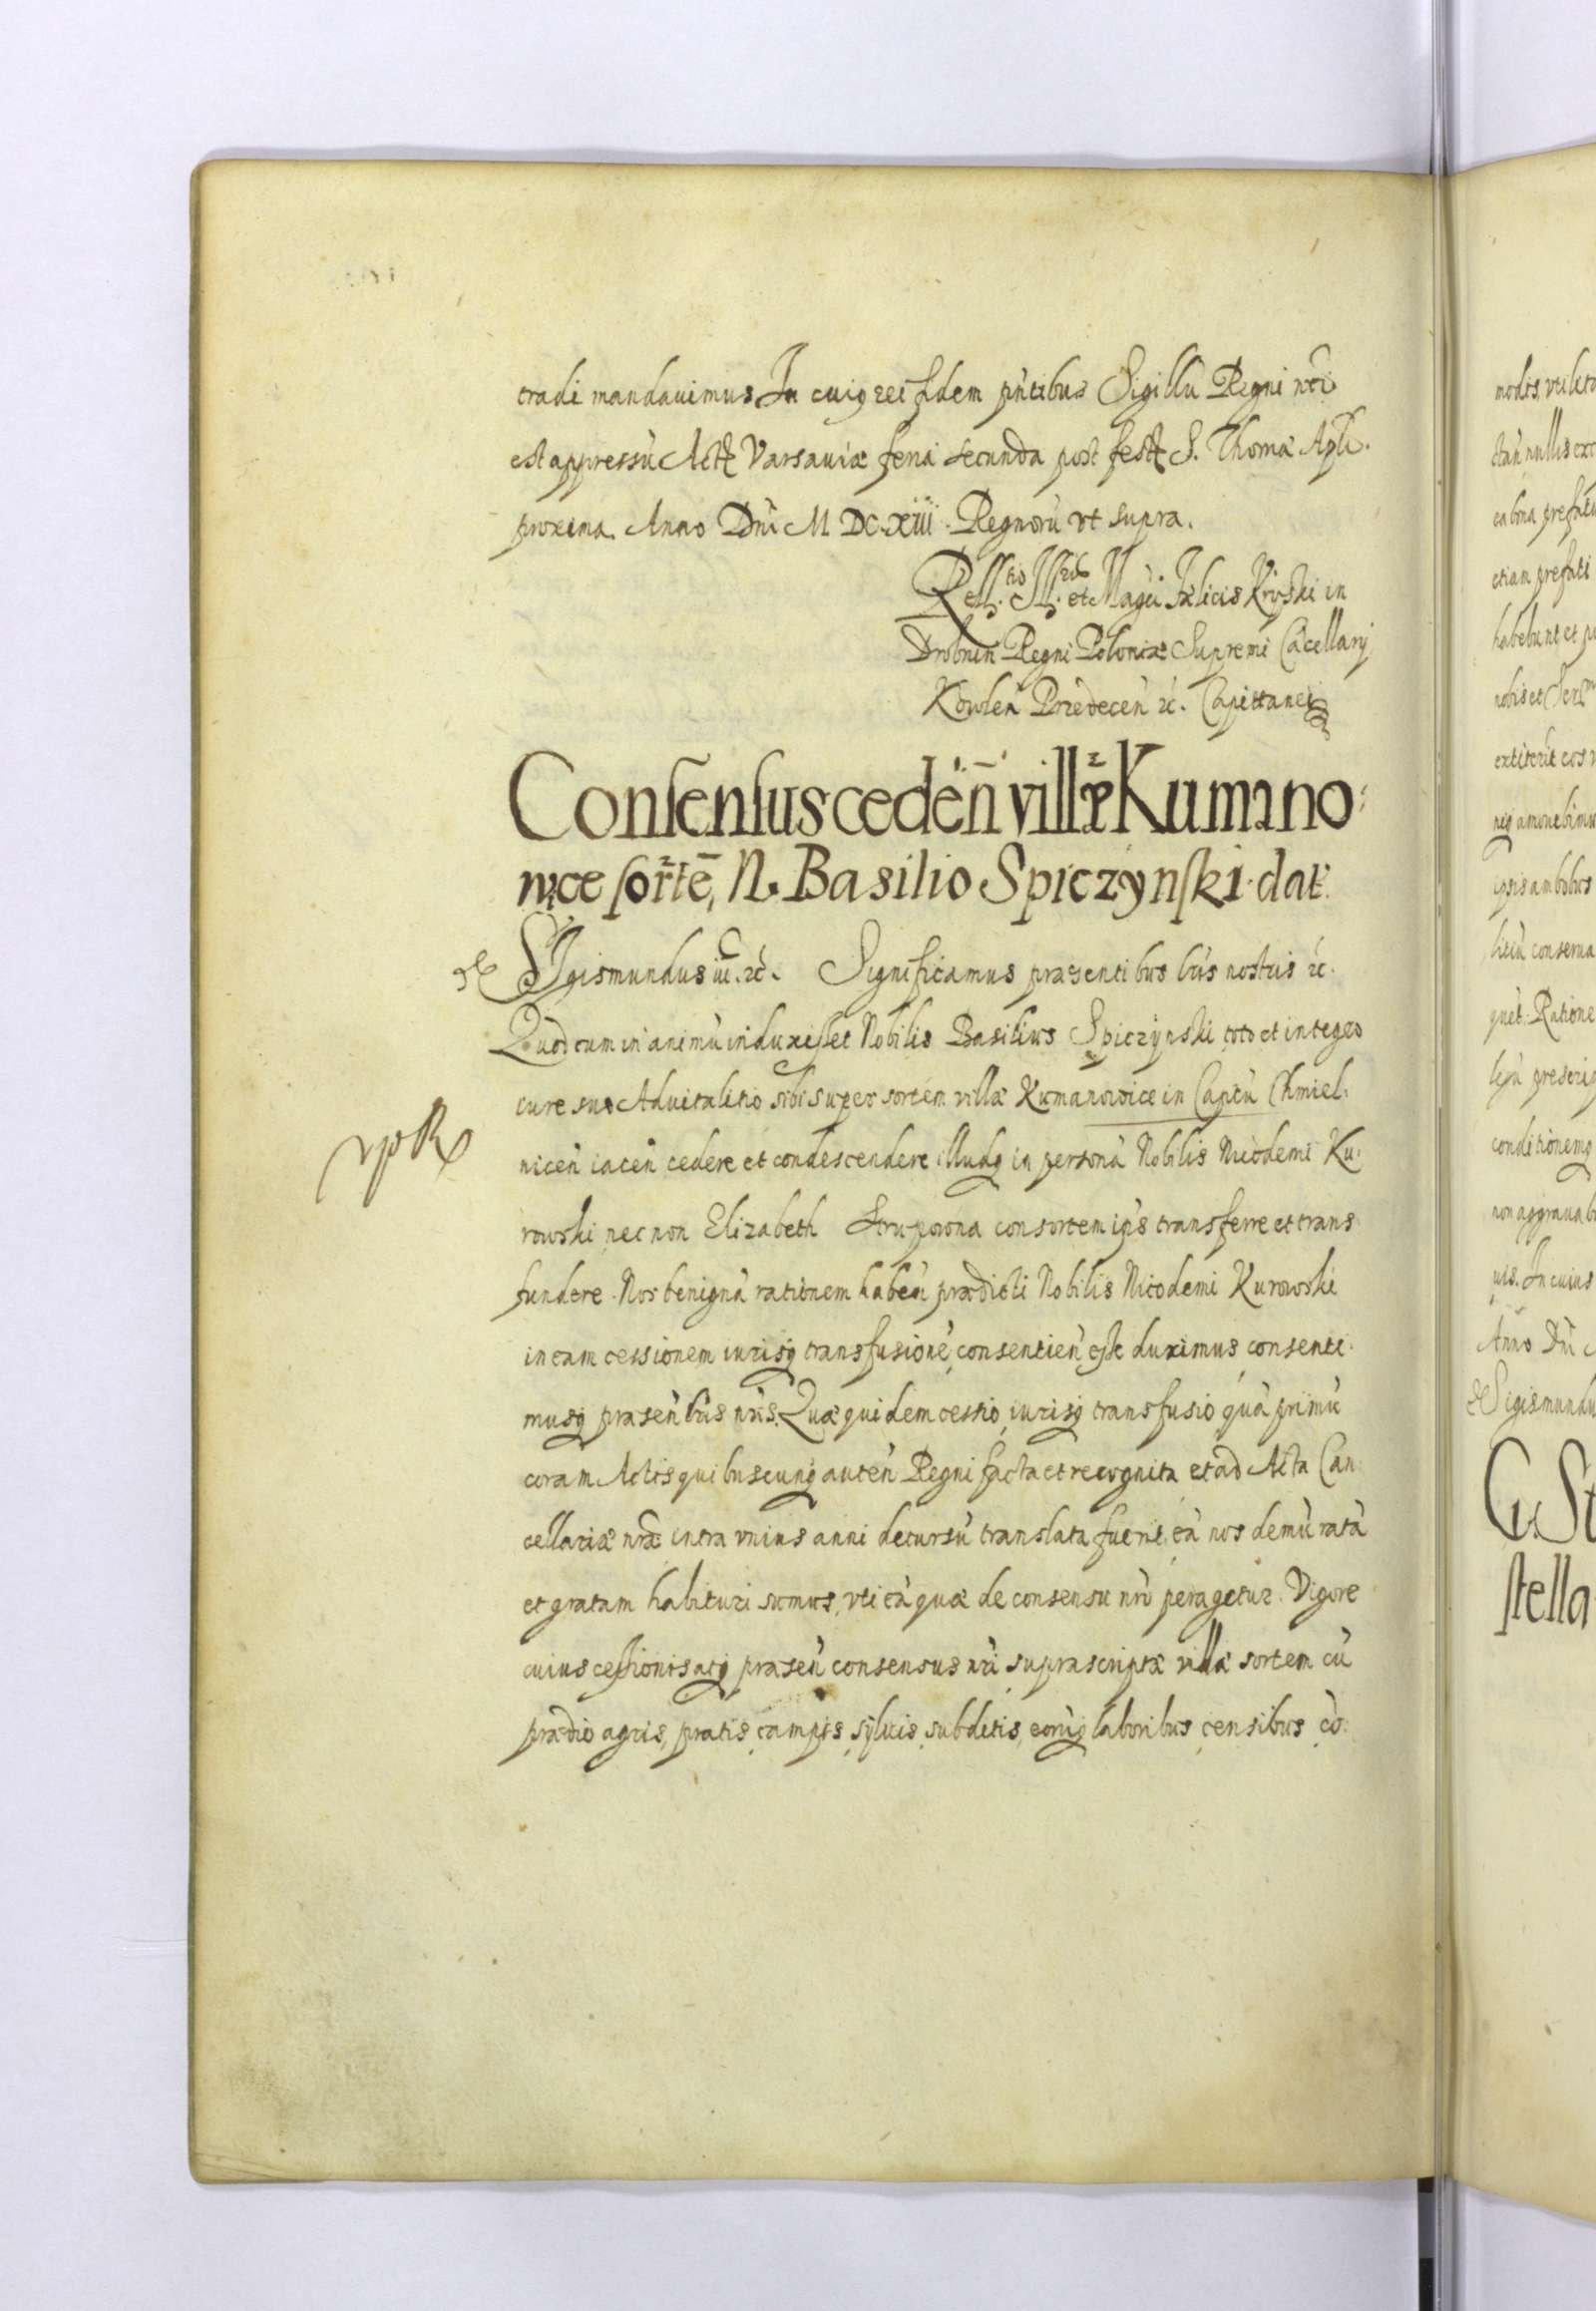 tradi mandauimus In cuiq rei fidem pñtibus Sigillũ Regni nr̃i
est appressũ Act Varsauiæ feria secunda post fest S. Thomæ Apli.
proxima. Anno Dni M DC XIII. Regnorũ vt supra.
Rell.tio Ill.ris et Magci Fælicis Kriski in
Drobnin Regni Poloniæ Supremi Cãcellarij
Kowleñ &c. Capittanei
Consensus cedeñ villæ Kumano:
wice sortẽ, N. Basilio Spiczynski dat.
SIgismundus iii. &c. Significamus præsentibus lr̃is nostris &c.
Quod cum in animũ induxisset Nobilis Basilius Spiczynski toto et integro
iure suo Aduitalitio sibi super sortem villæ Kumanowice in Captũ Chmiel.
niceñ iaceñ cedere et condescendere illudq in personã Nobilis Nicodemi Ku:
vpR
rowski nec non Elizabeth Struporona consortem ip̃s transferre et trans
fundere. Nos benignã rationem habeñ prædicti Nobilis Nicodemi Kurowski
in eam cessionem iurisq transfusionẽ consentieñ esse duximus consenti
musq præseñ lr̃is nr̃is. Quæ quidem cessio iurisq transfusio quã primũ
coram Actis quibuscunq auteñ Regni facta et recognita et ad Acta Can
cellariæ nr̃æ intra vnius anni decursũ translata fuerit, eã nos demũ ratã
et gratam habituri sumus, vti eã quæ de consensu nr̃o peragetur. Vigore
cuius cessionis atq præseñ consensus nr̃i suprascriptæ villæ sortem cũ
prædio agris, pratis, campis, syluis, subditis, eorũq laboribus censibus cõ: